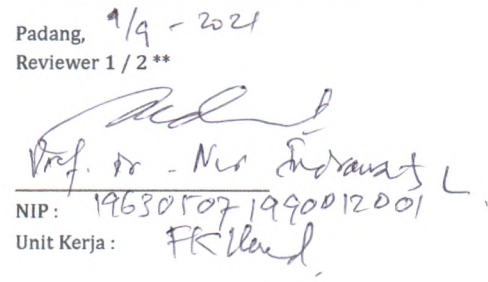 Padang, 1/9 - 2021
Reviewer 1 / 2 **
Prof. dr. Nur Indrawaty L
NIP : 196305071990012001
Unit Kerja : FK Unand